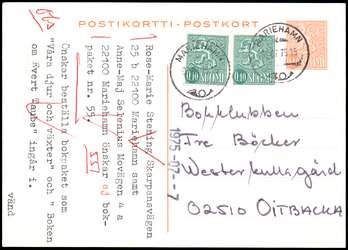 Obs
POSTIKORTTI - POSTKORT
Rose-Marie Stening Skarpansvägen
25 b 22100 Mariehamn samt
Anne-Maj Selenius Movägen 4 a
22100 Mariehamn önskar ej bok-
paket nr. 55.
557
Önskar beställa bokpaket som
"Våra djur och växter" och " Boken
om Evert Taube" ingår i.
vänd
MARIEHAMN
0,10 SUOMI
0,10 SUOMI
MARIEHAMN
1975-07-- 7
Bokklubben
Tre Böcker
Westerkullagård
02510 OITBACKA